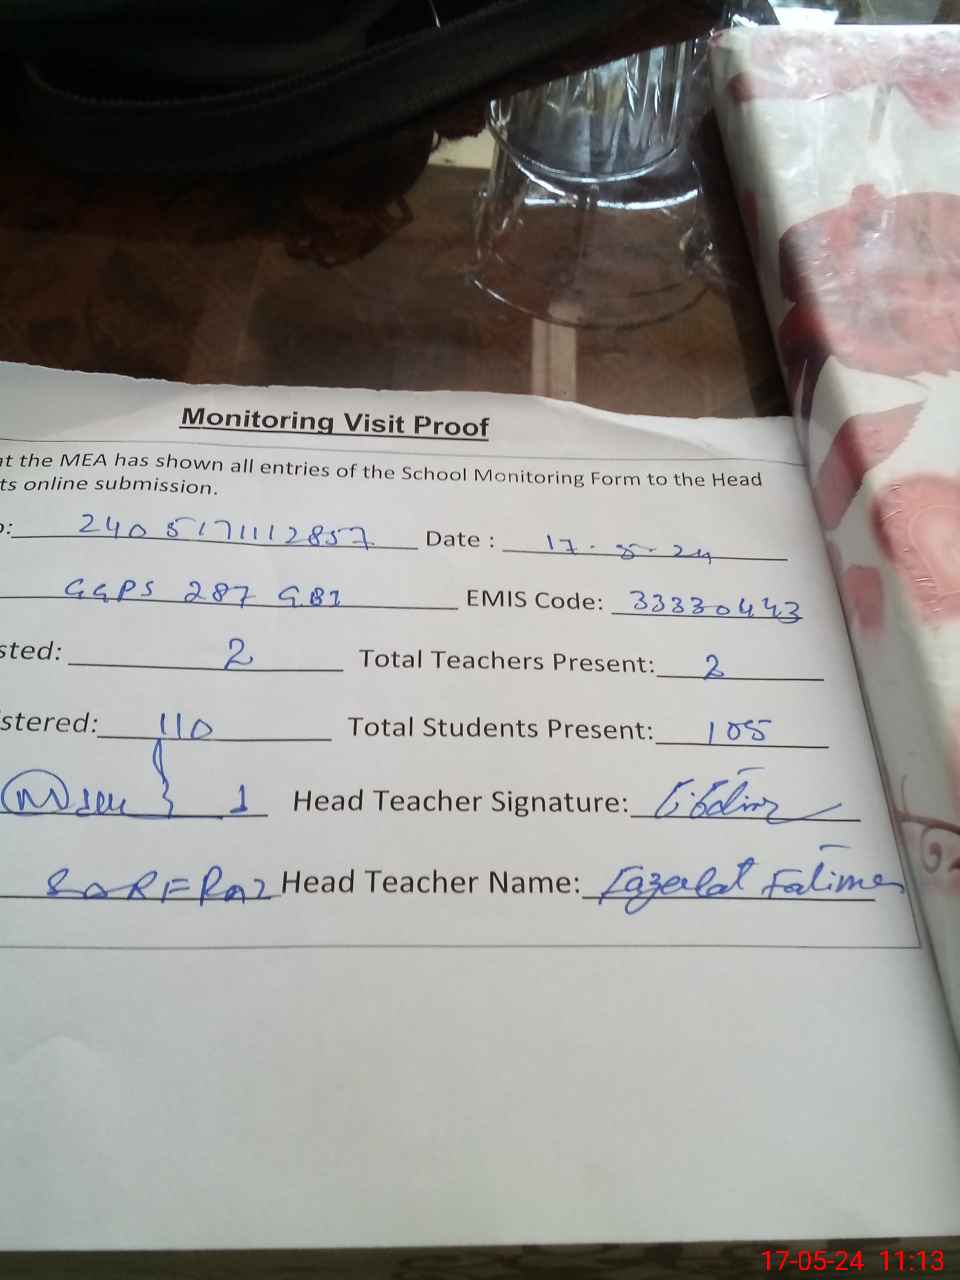 Monitoring Visit Proof
at the MEA has shown all entries of the School Monitoring Form to the Head
ts online submission.
o: 2405171112857 Date : 17-5-24
GGPS 287 GB1 EMIS Code: 33330443
sted: 2 Total Teachers Present: 2
stered: 110 Total Students Present: 105
Head Teacher Signature:
SARFRAZ Head Teacher Name: Fazeelat Fatima
17-05-24 11:13